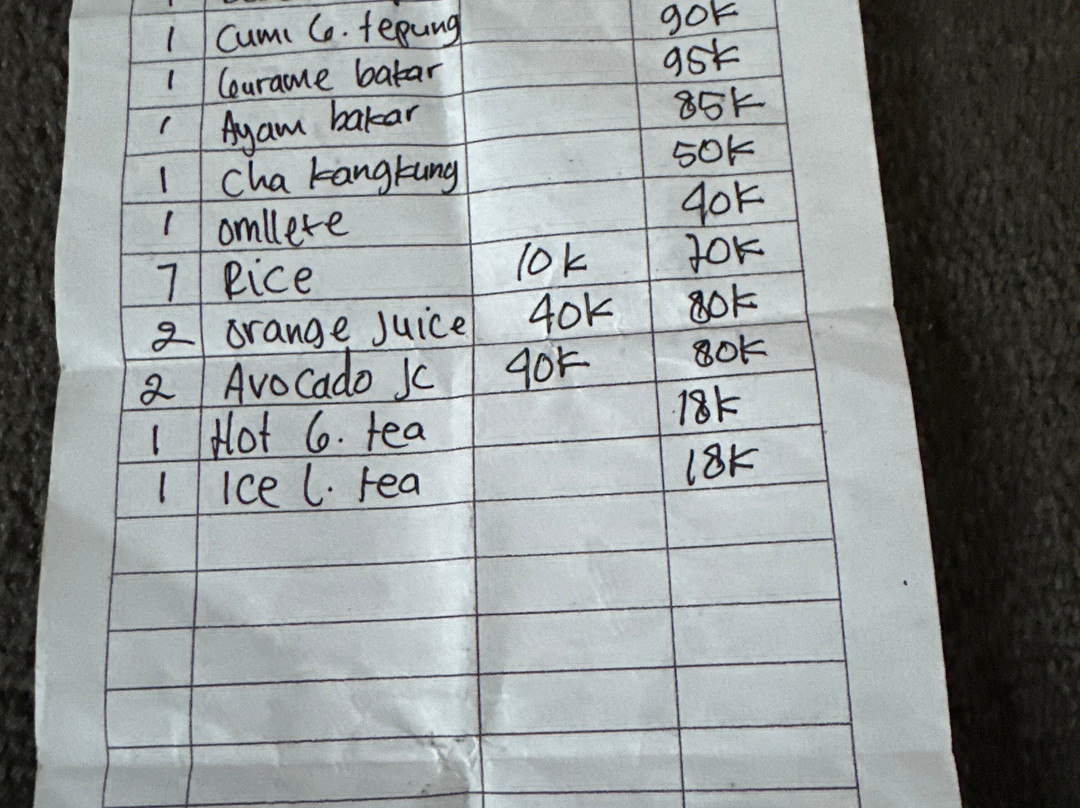 1 Cumi G. tepung 90K
1 Gurame bakar 95K
1 Ayam bakar 85K
1 Cha kangkung 50K
1 omllete 40K
7 Rice 10K 70K
2 orange Juice 40K 80K
2 Avocado Jc 40K 80K
1 Hot G. tea 18K
1 Ice L. tea 18K